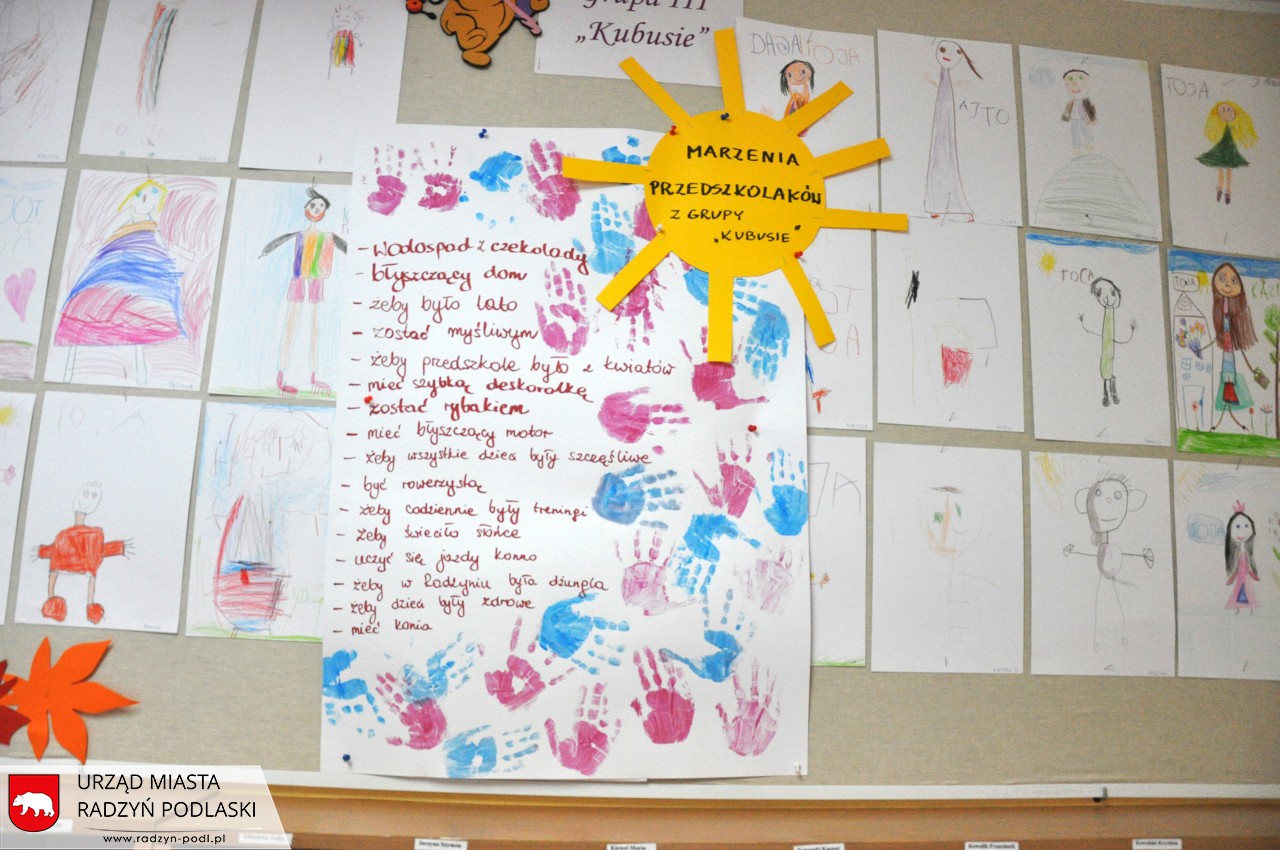 grupa III
„Kubusie"
MARZENIA
PRZEDSZKOLAKÓW
Z GRUPY
„KUBUSIE"
- Wodospad z czekolady
- błyszczący dom
- żeby było lato
- zostać myśliwym
- żeby przedszkole było z kwiatów
- mieć szybką deskorolkę
- zostać rybakiem
- mieć błyszczący motor
- żeby wszystkie dzieci były szczęśliwe
- być rowerzystą
- żeby codziennie były treningi
- żeby świeciło słońce
- uczyć się jazdy konno
- żeby w Radzyniu była dżungla
- żeby dzieci były zdrowe
- mieć konia
DAJA TOJA
AJTO
TOJA
TOCA
URZĄD MIASTA
RADZYŃ PODLASKI
www.radzyn-podl.pl